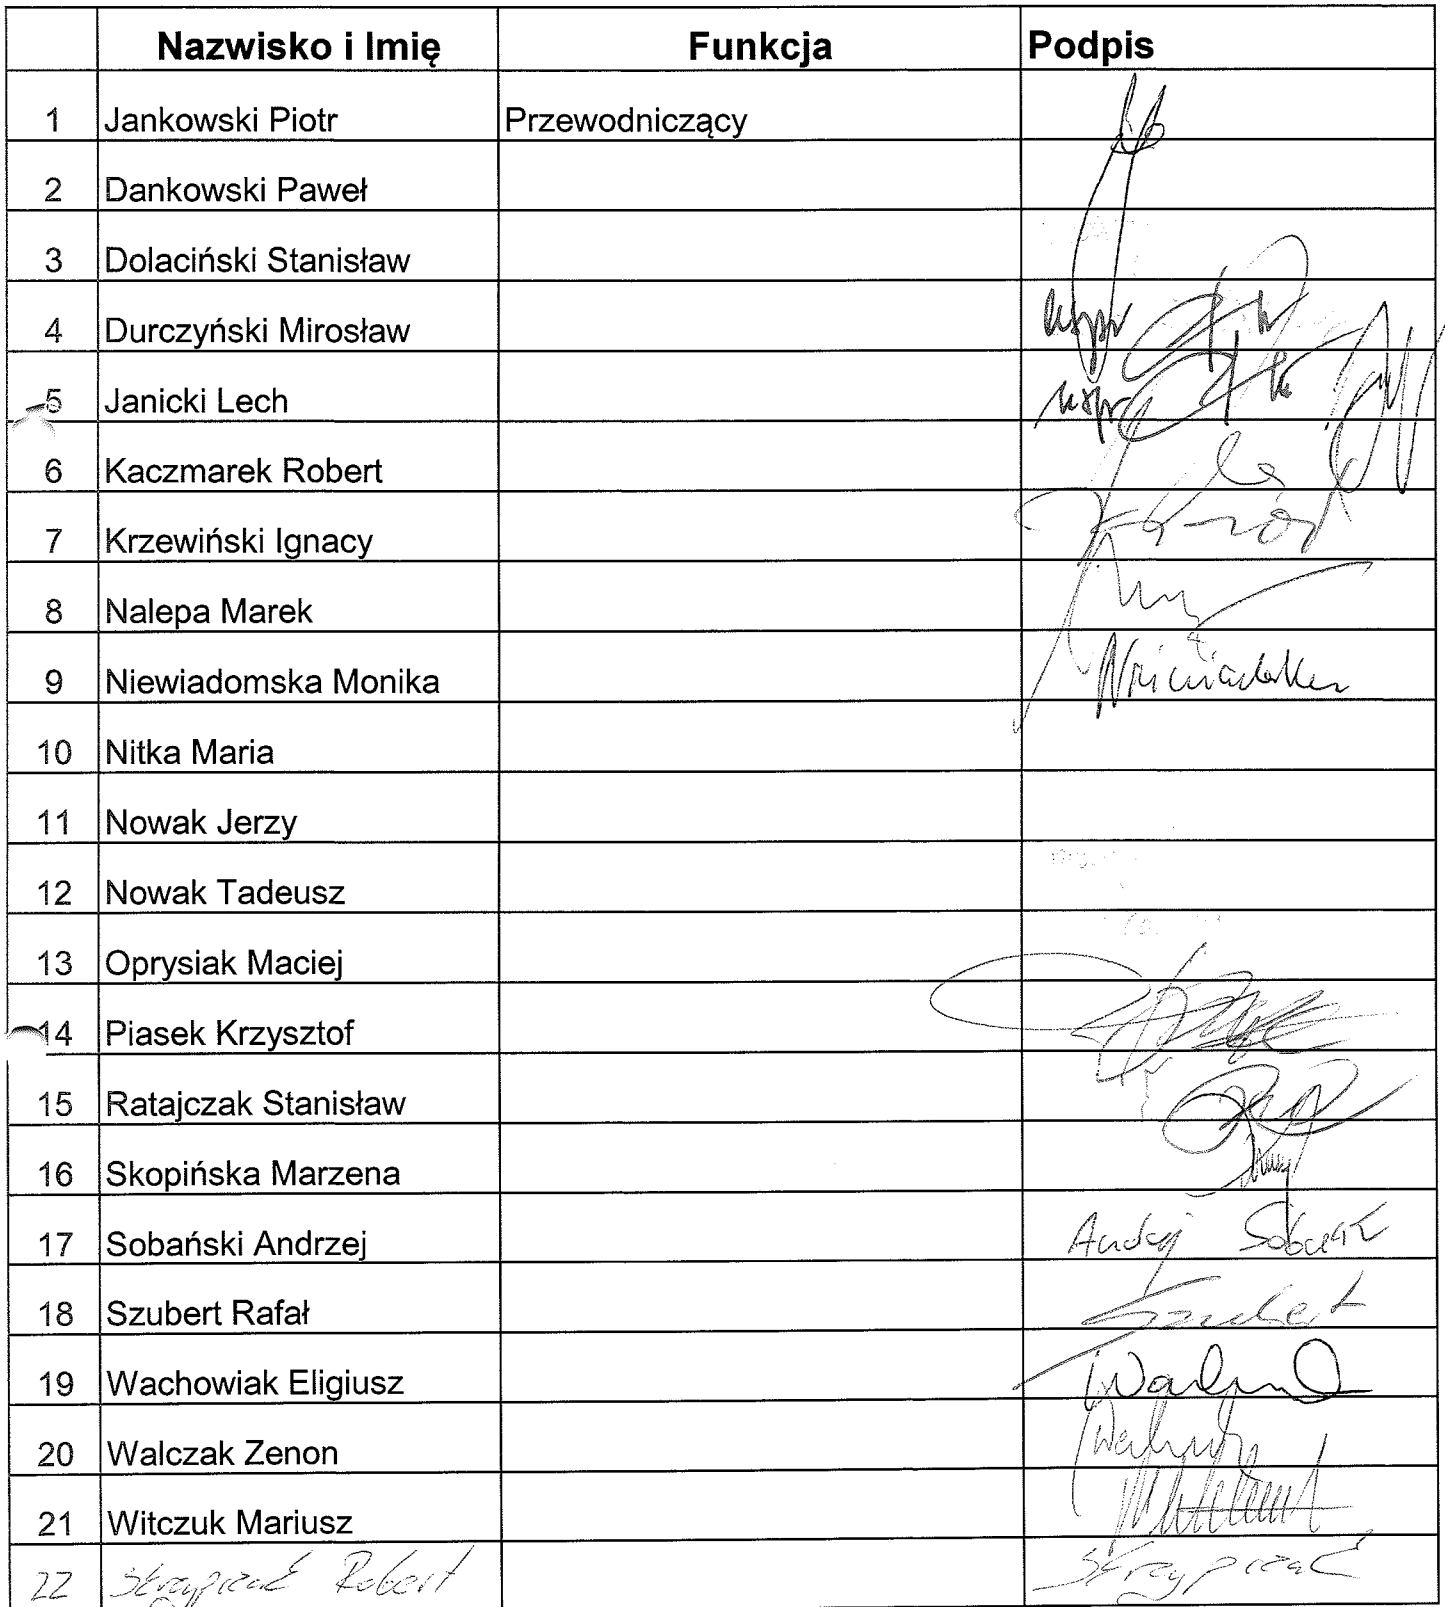 Nazwisko i Imię Funkcja Podpis
1 Jankowski Piotr Przewodniczący
2 Dankowski Paweł
3 Dolaciński Stanisław
4 Durczyński Mirosław
5 Janicki Lech
6 Kaczmarek Robert
7 Krzewiński Ignacy
8 Nalepa Marek
9 Niewiadomska Monika
10 Nitka Maria
11 Nowak Jerzy
12 Nowak Tadeusz
13 Oprysiak Maciej
14 Piasek Krzysztof
15 Ratajczak Stanisław
16 Skopińska Marzena
17 Sobański Andrzej Andrzej
18 Szubert Rafał Szubert
19 Wachowiak Eligiusz
20 Walczak Zenon
21 Witczuk Mariusz
22 Skrzypczak Robert Skrzypczak